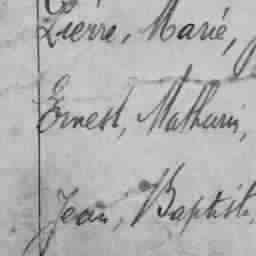 Pierre, Marie,
Ernest, Mathurin,
Jean, Baptiste,